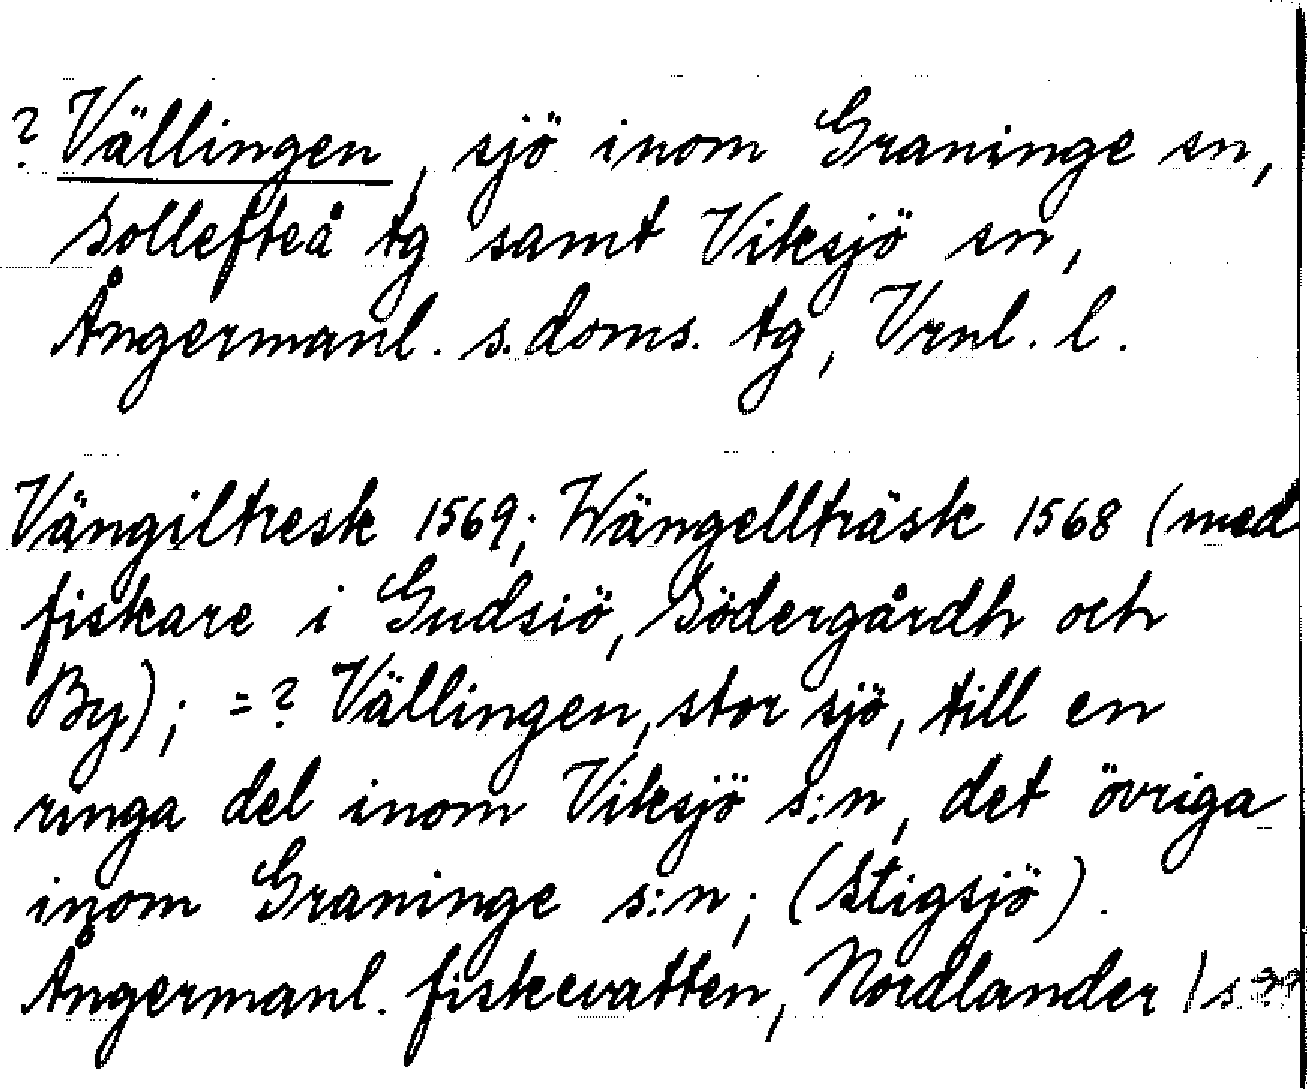 ? Vällingen, sjö inom Graninge sn,
Sollefteå tg samt Viksjö sn,
Ångermanl. s. doms. tg, Vrnl. l.
Vängiltresk 1569; Wängellträsk 1568 (med
fiskare i Gudsiö, Södergårdh och
By); =? Vällingen, stor sjö, till en
ringa del inom Viksjö s:n, det övriga
inom Graninge s:n; (Stigsjö).
Ångermanl. fiskevatten, Nordlander / s